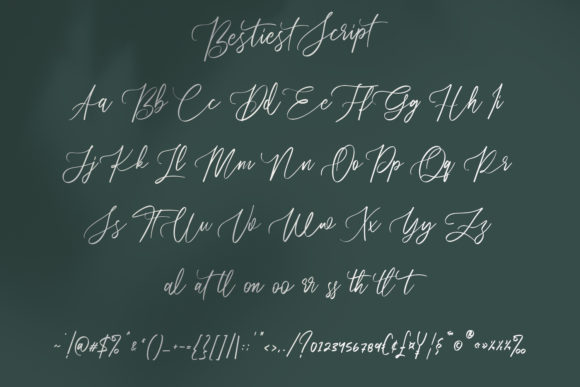 Bestiest Script
Aa Bb Cc Dd Ee Ff Gg Hh Ii
Jj Kk Ll Mm Nn Oo Pp Qq Rr
Ss Tt Uu Vv Ww Xx Yy Zz
al at tl on oo rr ss th tl t
~!@#$% & ()_+-={}[]|\:;'"<>,./?0123456789¢£¤¥¦§ © ®